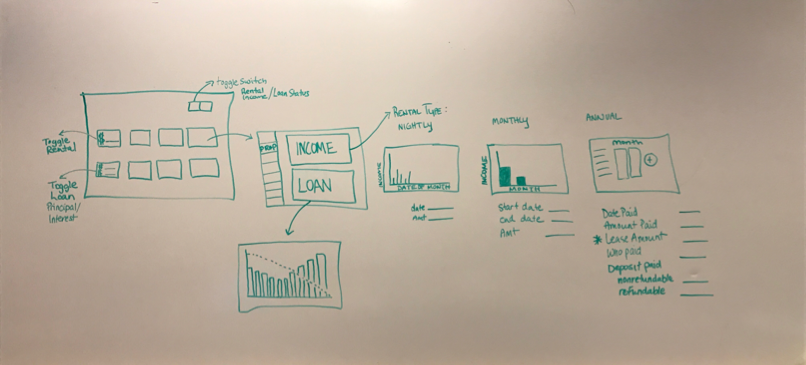 toggle switch
Rental Income/Loan Status
Toggle
Rental
$
Toggle
Loan
Principal/
Interest
$
PROP
INCOME
LOAN
RENTAL TYPE:
NIGHTLY
INCOME
DATE OF MONTH
date
Amt
MONTHLY
INCOME
MONTH
Start date
end date
Amt
ANNUAL
month
+
Date Paid
Amount Paid
* Lease Amount
Who paid
Deposit paid
nonrefundable
refundable